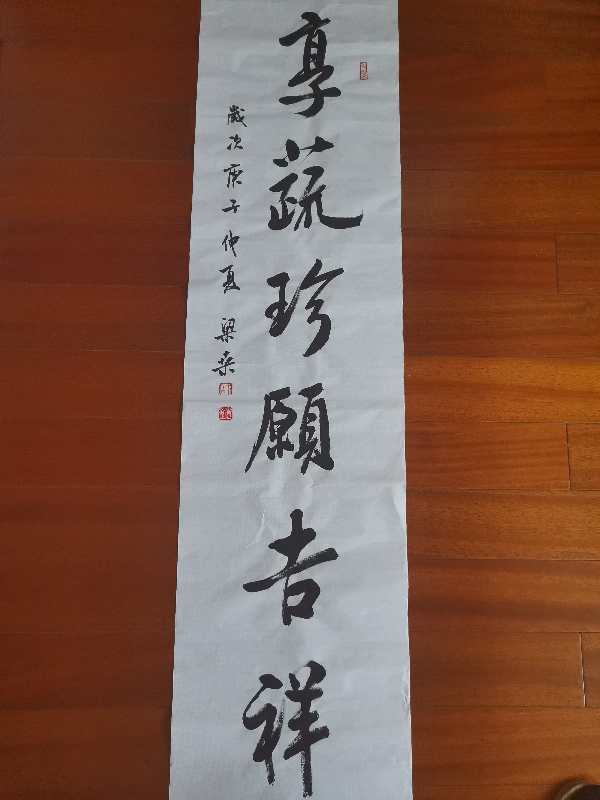 享蔬珍願吉祥
歲次庚子仲夏 梁栄